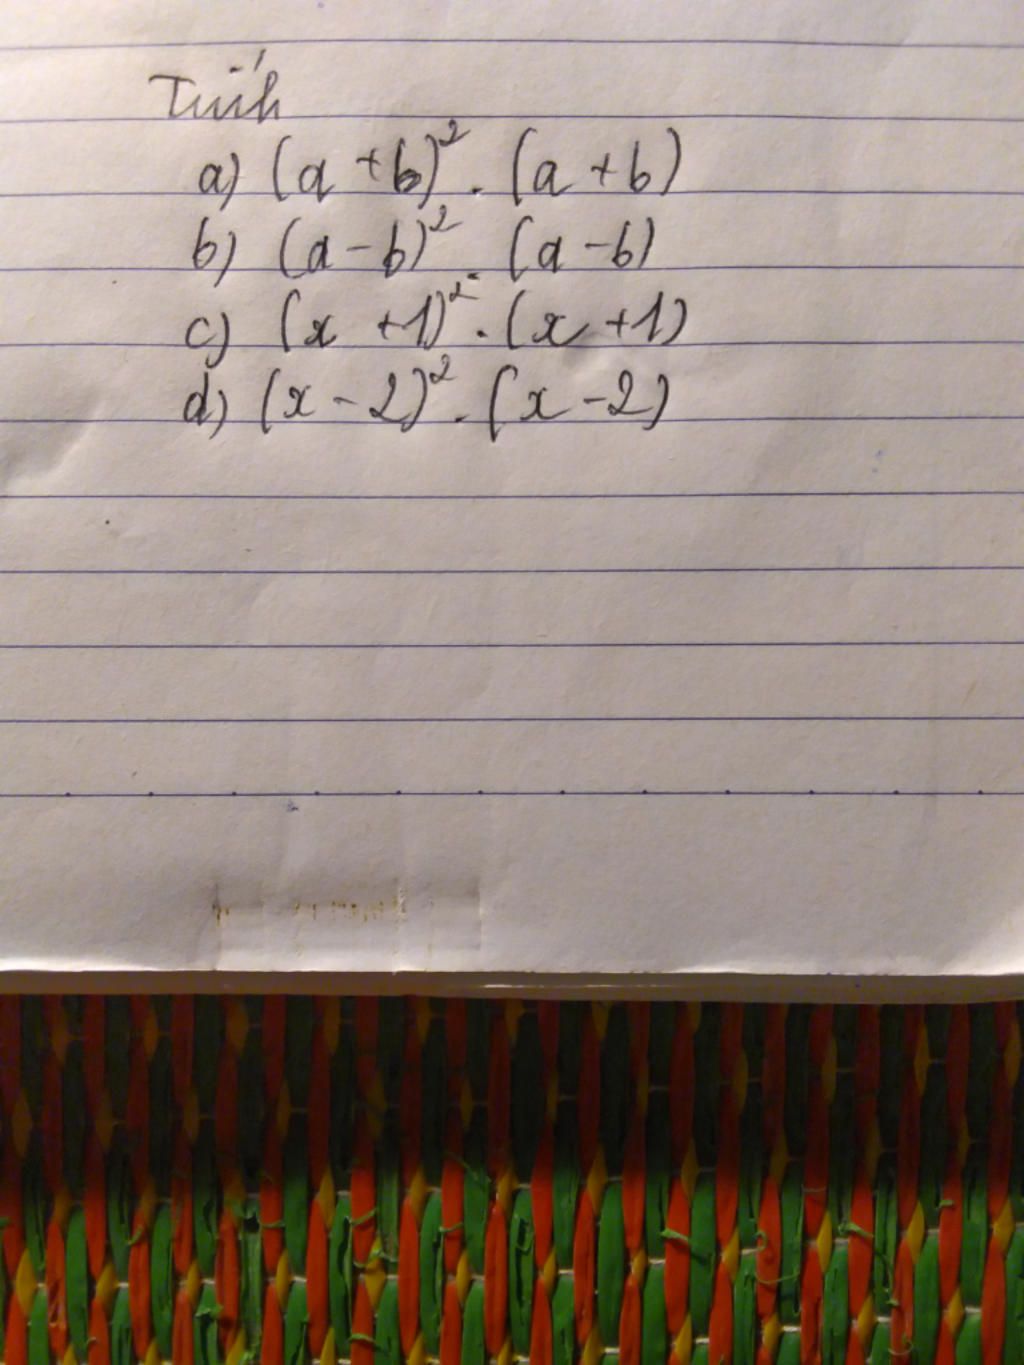 Tính
a) (a + b)² . (a + b)
b) (a - b)² . (a - b)
c) (x + 1)² . (x + 1)
d) (x - 2)² . (x - 2)